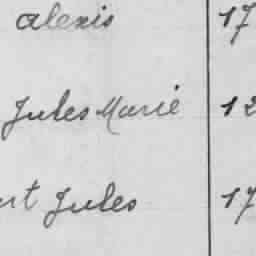 alexis 17
Jules Marie 12
rt Jules 17